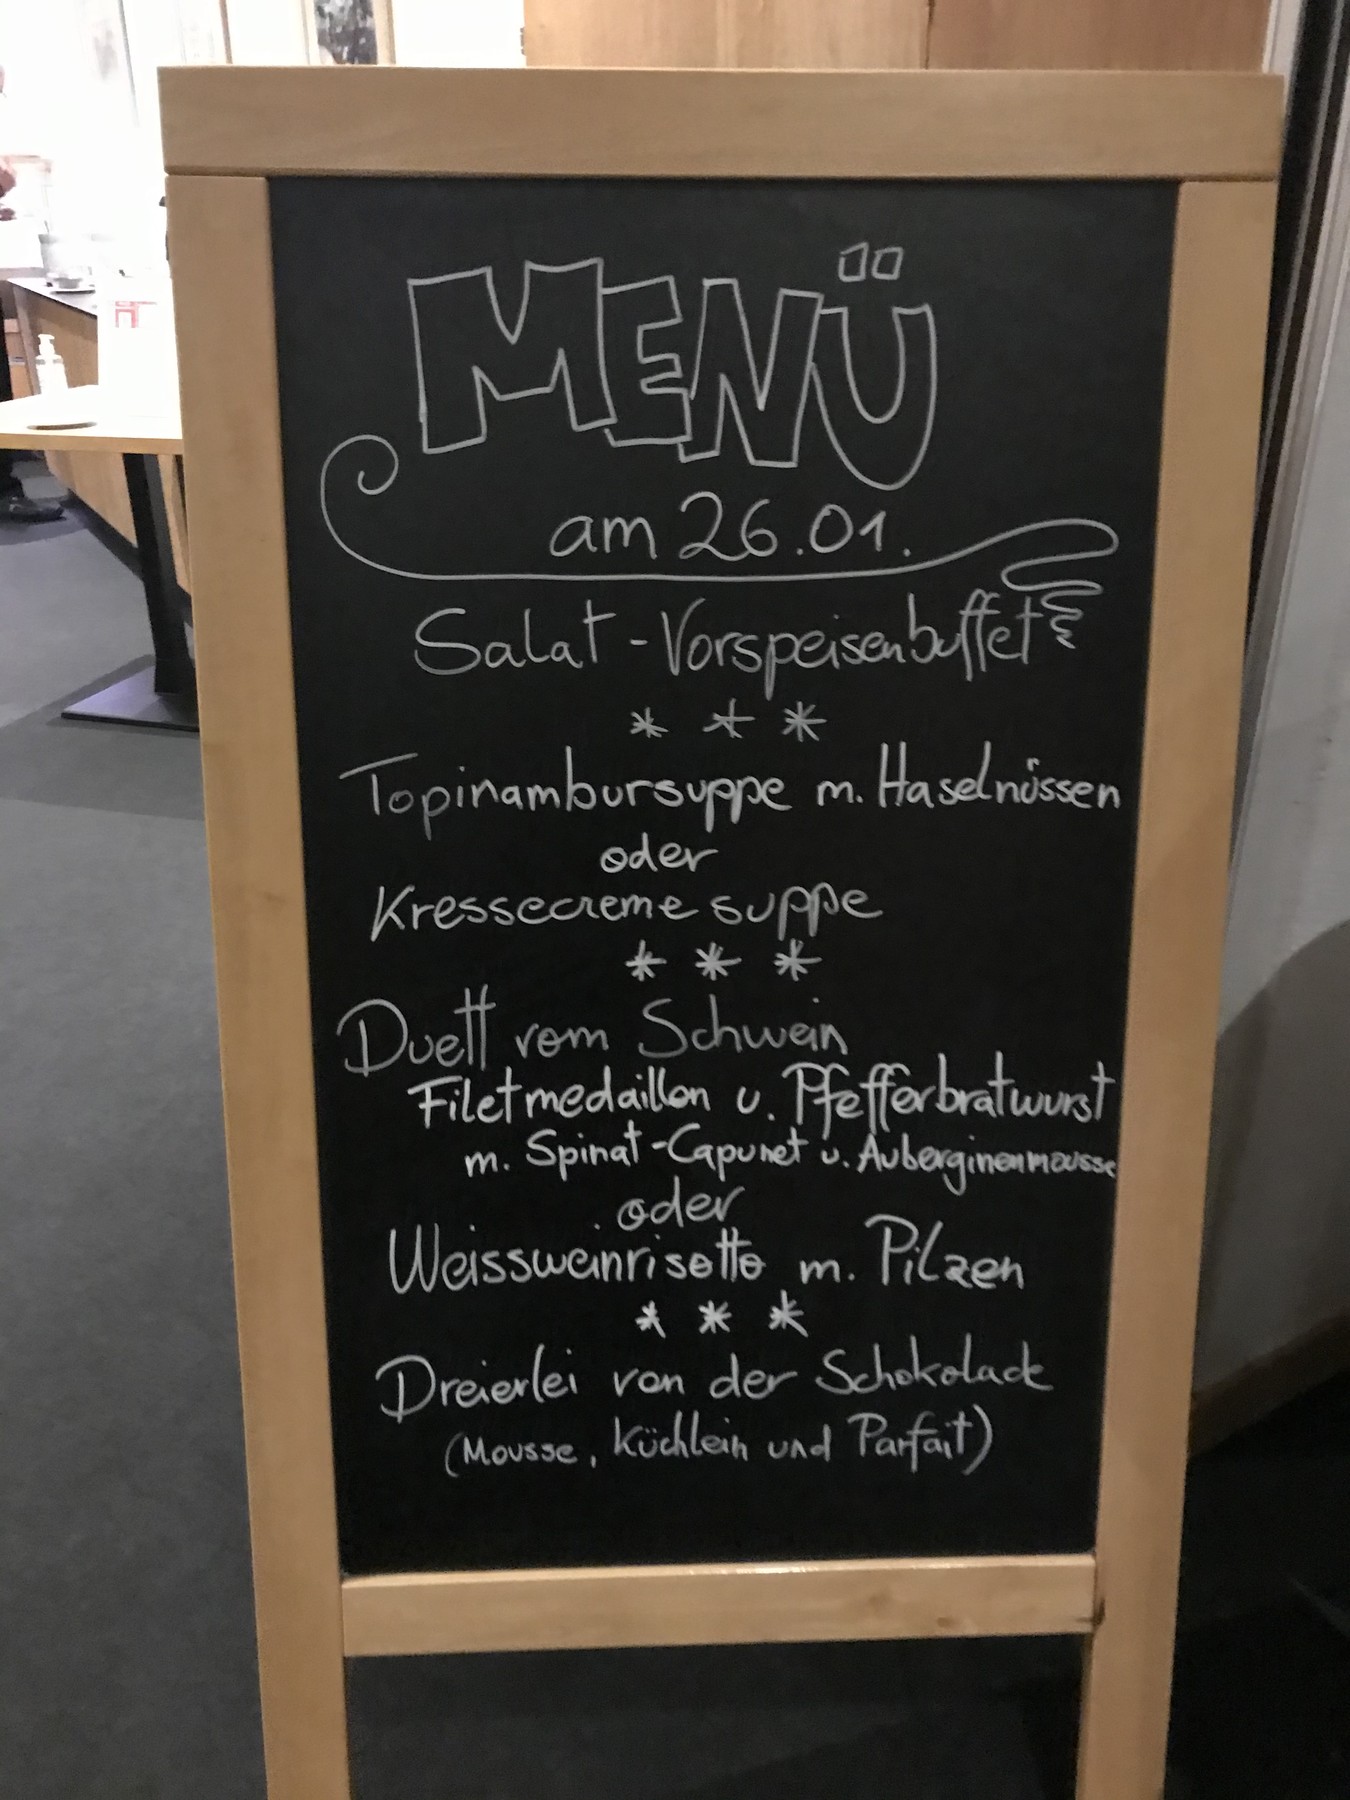 MENÜ
am 26.01.
Salat-Vorspeisenbuffet
* * *
Topinambursuppe m. Haselnüssen
oder
Kressecremesuppe
* * *
Duett vom Schwein
Filetmedaillon u. Pfefferbratwurst
m. Spinat-Capunet u. Auberginenmousse
oder
Weissweinrisotto m. Pilzen
* * *
Dreierlei von der Schokolade
(Mousse, Küchlein und Parfait)